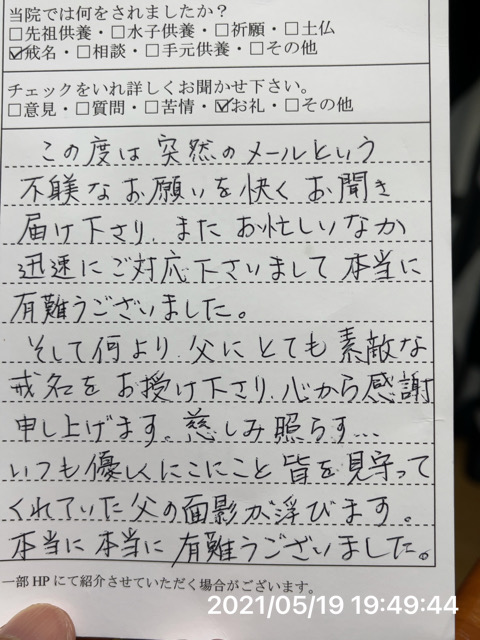 当院では何をされましたか？
□先祖供養・□水子供養・□祈願・□土仏
☑戒名・□相談・□手元供養・□その他
チェックをいれ詳しくお聞かせ下さい。
□意見・□質問・□苦情・☑お礼・□その他
この度は突然のメールという
不躾なお願いを快くお聞き
届け下さり、またお忙しいなか
迅速にご対応下さいまして本当に
有難うございました。
そして何より、父にとても素敵な
戒名をお授け下さり、心から感謝
申し上げます。慈しみ照らす…
いつも優しくにこにこと皆を見守って
くれていた父の面影が浮びます。
本当に本当に有難うございました。
一部HPにて紹介させていただく場合がございます。
2021/05/19 19:49:44